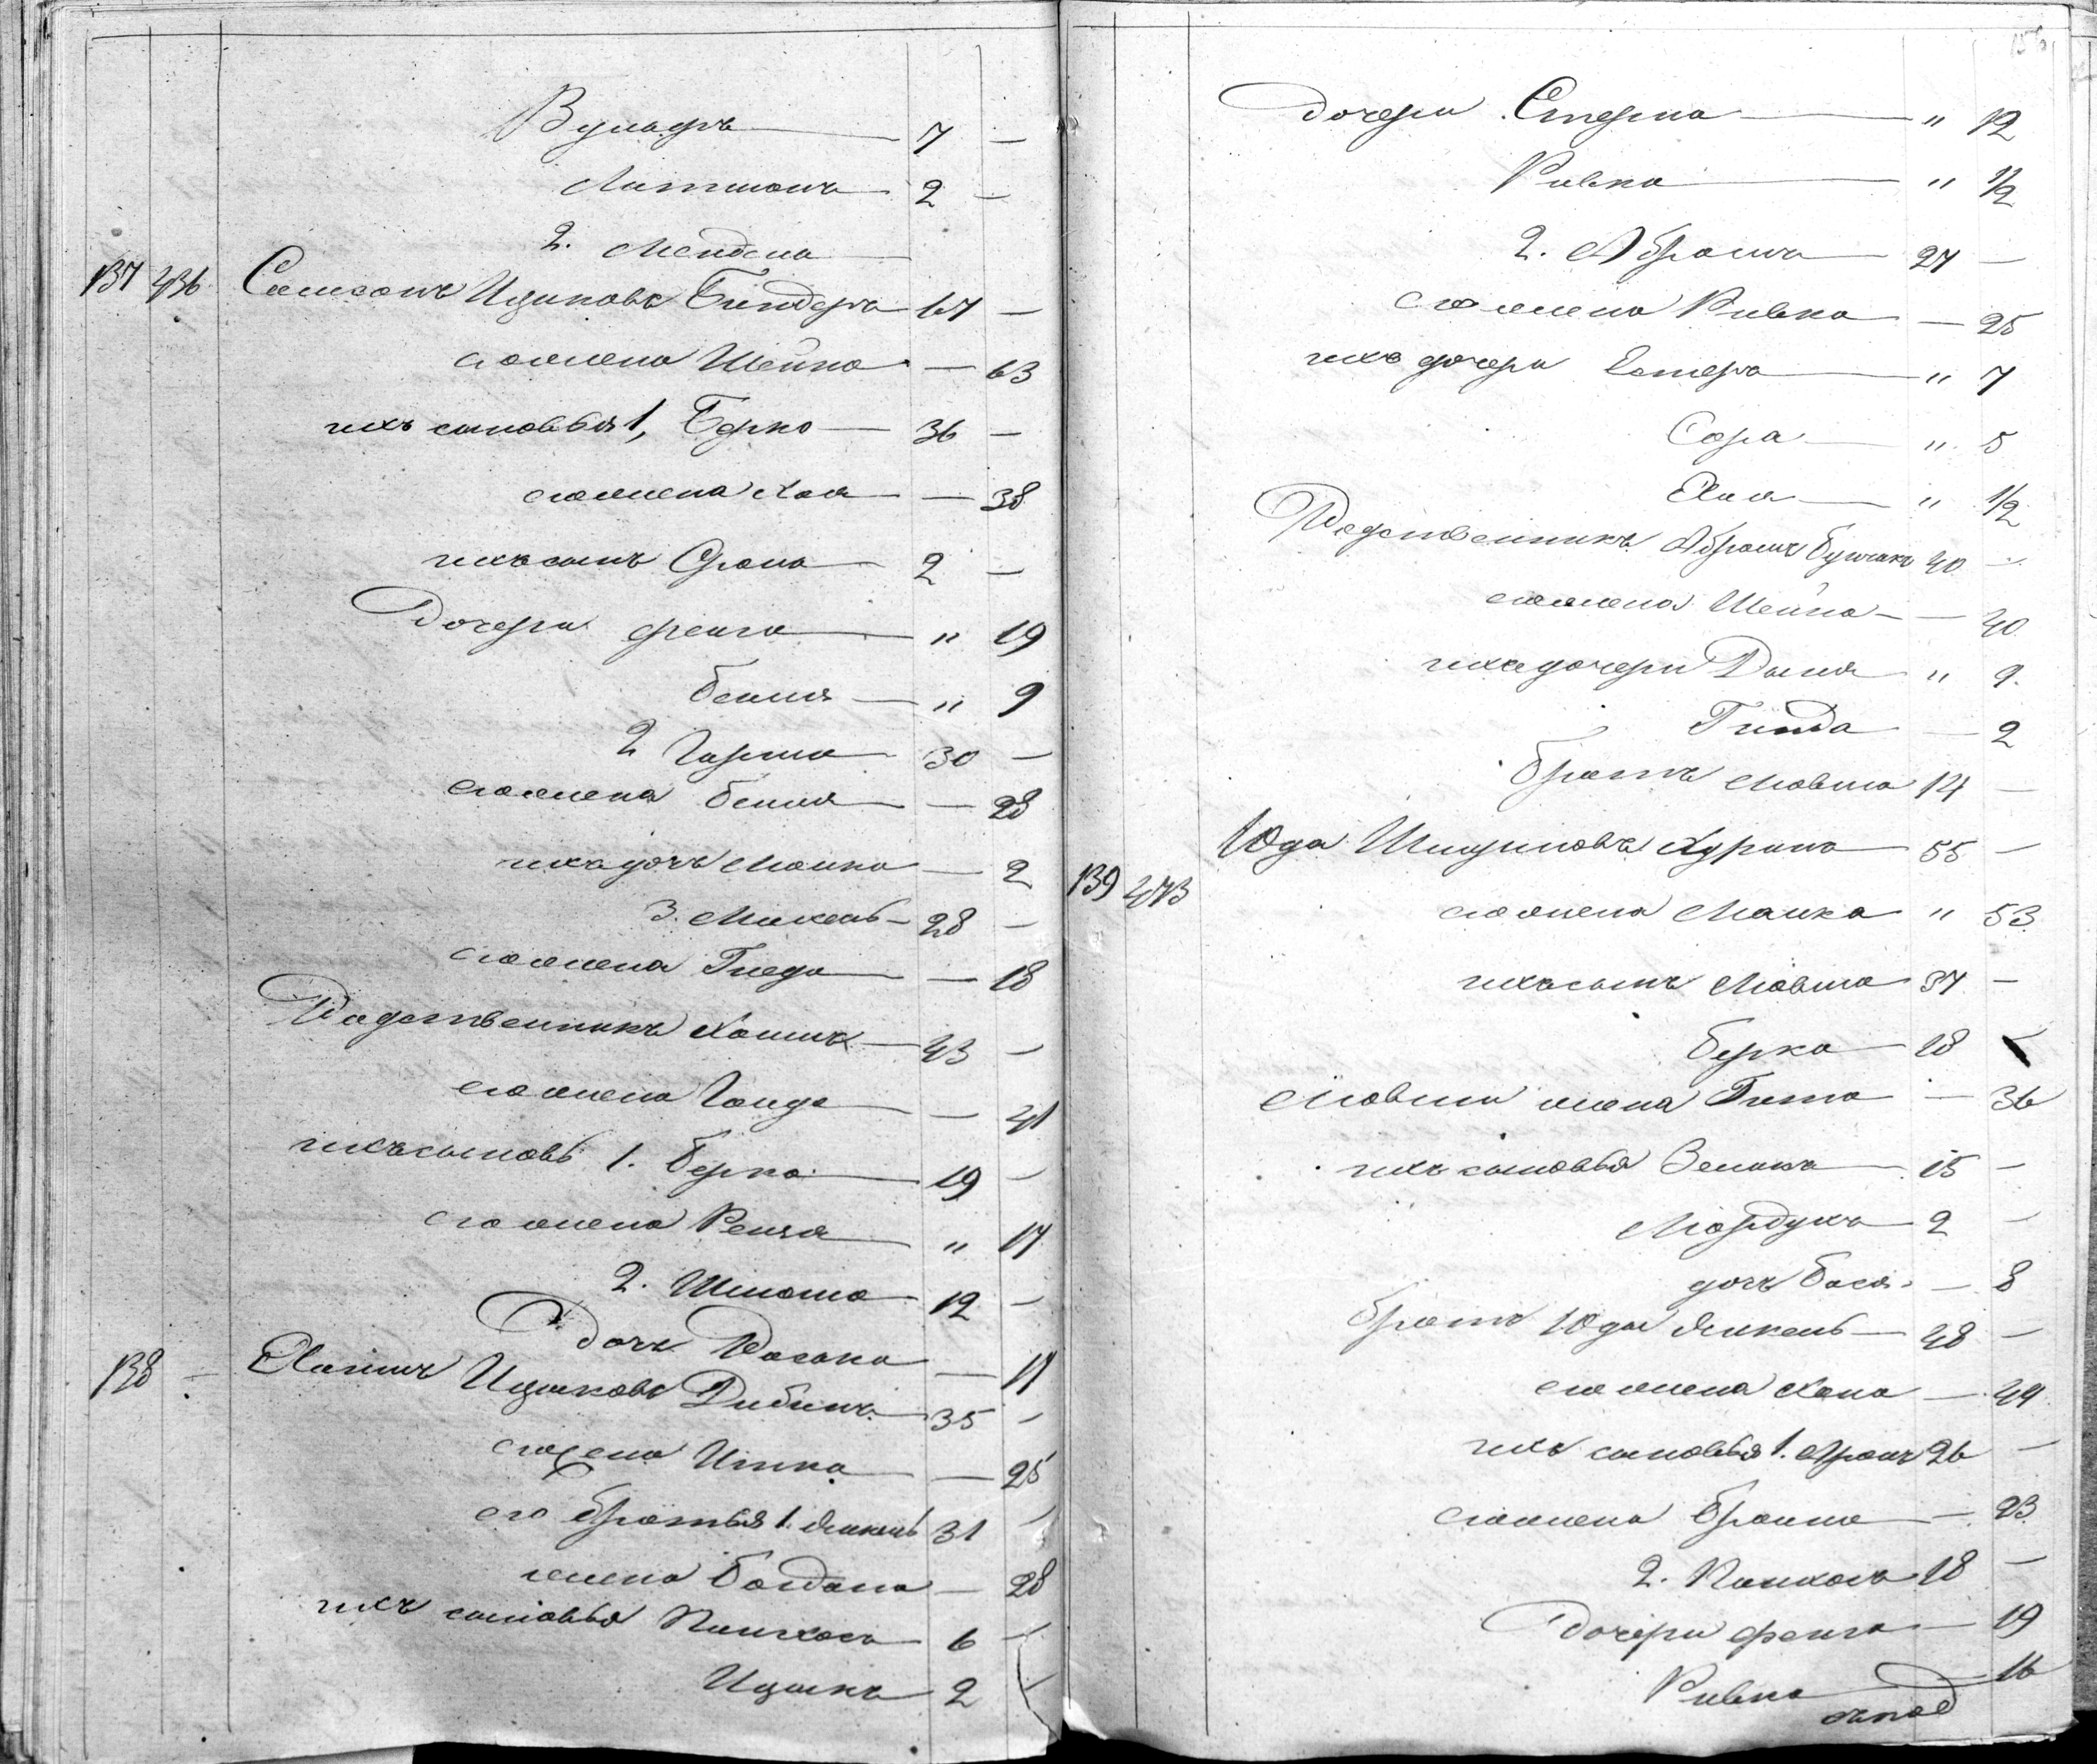 Вульфъ — 7 —
2 —
2. Мендель
137 436 Самсонъ Ицковъ Биндеръ 67 —
его жена Шейна — 63
ихъ сыновья 1, Берко — 36 —
его жена Хая — 38
ихъ сынъ Срона 2 —
Дочери Фейга — " 19
Бейля — " 9
2 Гершко 30 —
его жена Бейля — 28
ихъ дочь Малка — 2
3. Михель — 28 —
его жена — 18
Родственникъ Хаимъ — 43 —
его жена — 41
ихъ сыновь 1. Берко — 19 —
его жена Рейзя " 17
2. Шлома 12 —
Дочь — 11
138 — Хаимъ Ицковъ Дибинъ 35 —
его жена Итка — 25
его братья 1. Янкель 31 —
жена Богдана — 28
ихъ сыновья Пинхосъ 6 —
Ицикъ 2 —
156
Дочери Стерна — " 12
Ривка — " 1/2
2. Абрамъ — 27 —
его жена Ривка — 25
ихъ дочери Естеръ — " 7
Сора — " 5
Хая — " 1/2
Родственникъ Абрамъ 40 —
его жена Шейна — 40
ихъ дочери Двыня " 9
Гинда — 2
братъ Мовша 14 —
Юда 55 —
139 473 его жена Малка " 53
ихъ сынъ Мовша 37 —
Берко — 18 —
Мовши жена Гитта — 36
ихъ сыновья Зелика 15 —
Мордухъ 2 —
дочь Бася — 8
братъ Юды Янкель — 48 —
его жена Хана — 44
ихъ сыновья 1. Аронъ 26 —
его жена Брайна — 23
2. Пинхосъ 18 —
Дочери Фейга — 19
Ривка — 16